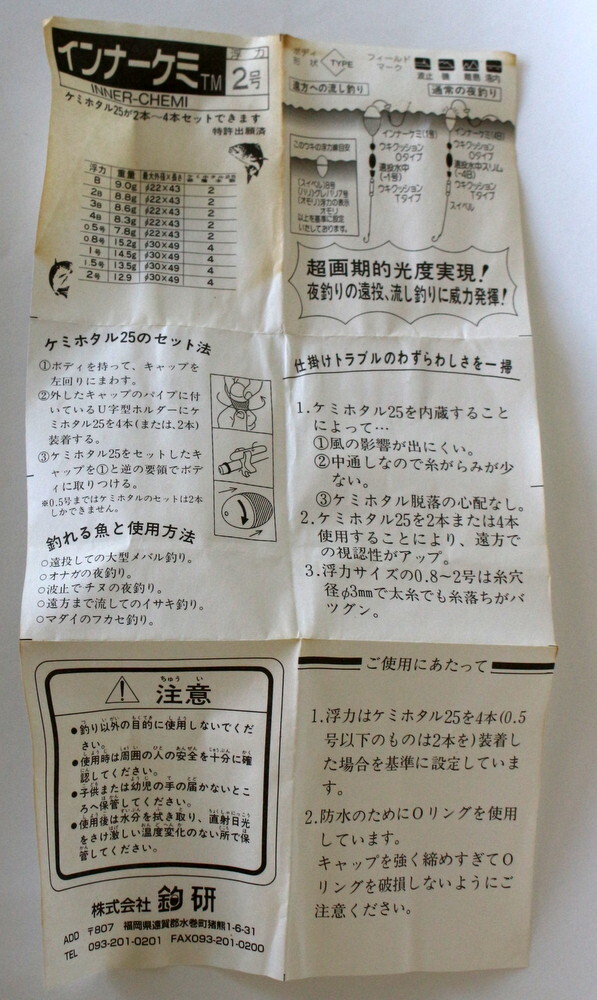 インナーケミTM
INNER-CHEMI
浮力
2号
ケミホタル25が2本〜4本セットできます
特許出願済
浮力 重量 最大外径×長さ
B 9.0g φ22×43 2
2B 8.8g φ22×43 2
3B 8.6g φ22×43 2
4B 8.3g φ22×43 2
0.5号 7.8g φ22×43 2
0.8号 15.2g φ30×49 4
1号 14.5g φ30×49 4
1.5号 13.5g φ30×49 4
2号 12.9 φ30×49 4
ボディ形状 TYPE フィールドマーク 波止 磯 離島 湾内
遠方への流し釣り
通常の夜釣り
このウキの浮力線目安
以上を基準に設定
いたしております。
ウキクッション
Oタイプ
遠投水中
(-1号)
ウキクッション
Tタイプ
ウキクッション
Oタイプ
遠投水中スリム
(-4B)
ウキクッション
Tタイプ
スイベル
超画期的光度実現!
夜釣りの遠投、流し釣りに威力発揮!
ケミホタル25のセット法
①ボディを持って、キャップを
左回りにまわす。
②外したキャップのパイプに付
いているU字型ホルダーにケ
ミホタル25を4本(または、2本)
装着する。
③ケミホタル25をセットしたキ
ャップを①と逆の要領でボデ
ィに取りつける。
※0.5号まではケミホタルのセットは2本
しかできません。
釣れる魚と使用方法
○遠投しての大型メバル釣り。
○オナガの夜釣り。
○波止でチヌの夜釣り。
○遠方まで流してのイサキ釣り。
○マダイのフカセ釣り。
仕掛けトラブルのわずらわしさを一掃
1.ケミホタル25を内蔵すること
によって…
①風の影響が出にくい。
②中通しなので糸がらみが少
ない。
③ケミホタル脱落の心配なし。
2.ケミホタル25を2本または4本
使用することにより、遠方で
の視認性がアップ。
3.浮力サイズの0.8〜2号は糸穴
径φ3mmで太糸でも糸落ちがバ
ツグン。
注意
●釣り以外の目的に使用しないでくだ
さい。
●使用時は周囲の人の安全を十分に確
認してください。
●子供または幼児の手の届かないとこ
ろへ保管してください。
●使用後は水分を拭き取り、直射日光
をさけ激しい温度変化のない所で保
管してください。
株式会社 釣研
ADD 〒807 福岡県遠賀郡水巻町猪熊1-6-31
TEL 093-201-0201 FAX093-201-0200
ご使用にあたって
1.浮力はケミホタル25を4本(0.5
号以下のものは2本を)装着し
た場合を基準に設定していま
す。
2.防水のためにOリングを使用
しています。
キャップを強く締めすぎてO
リングを破損しないようにご
注意ください。